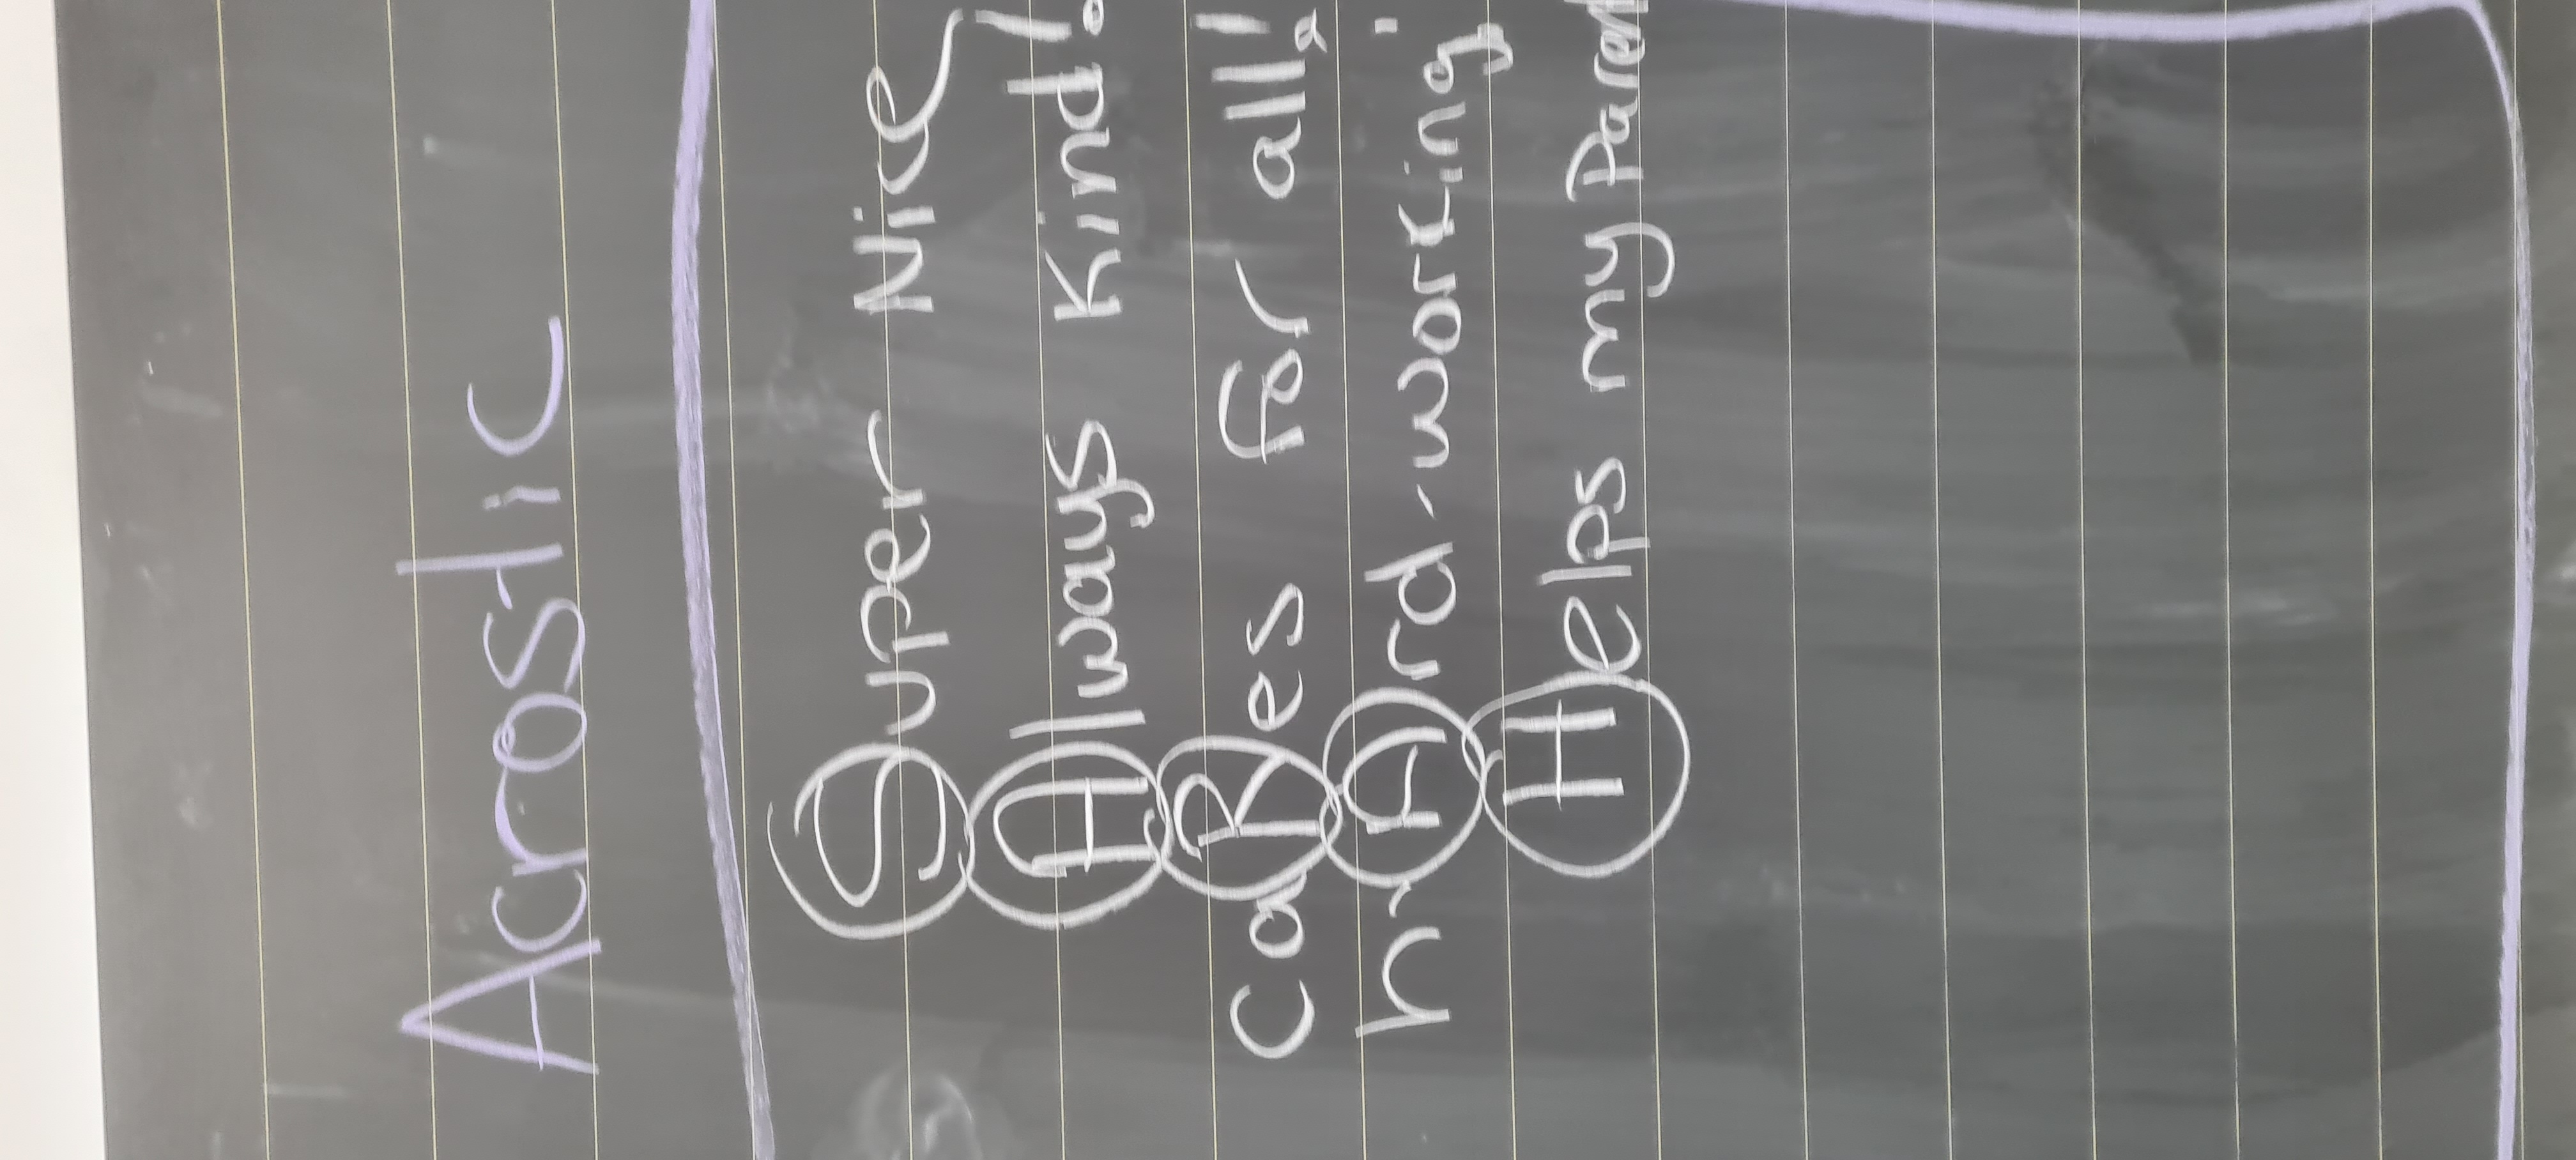 Acrostic
Super Nice
Always Kind!
caRes for all!
hArd-working
Helps my